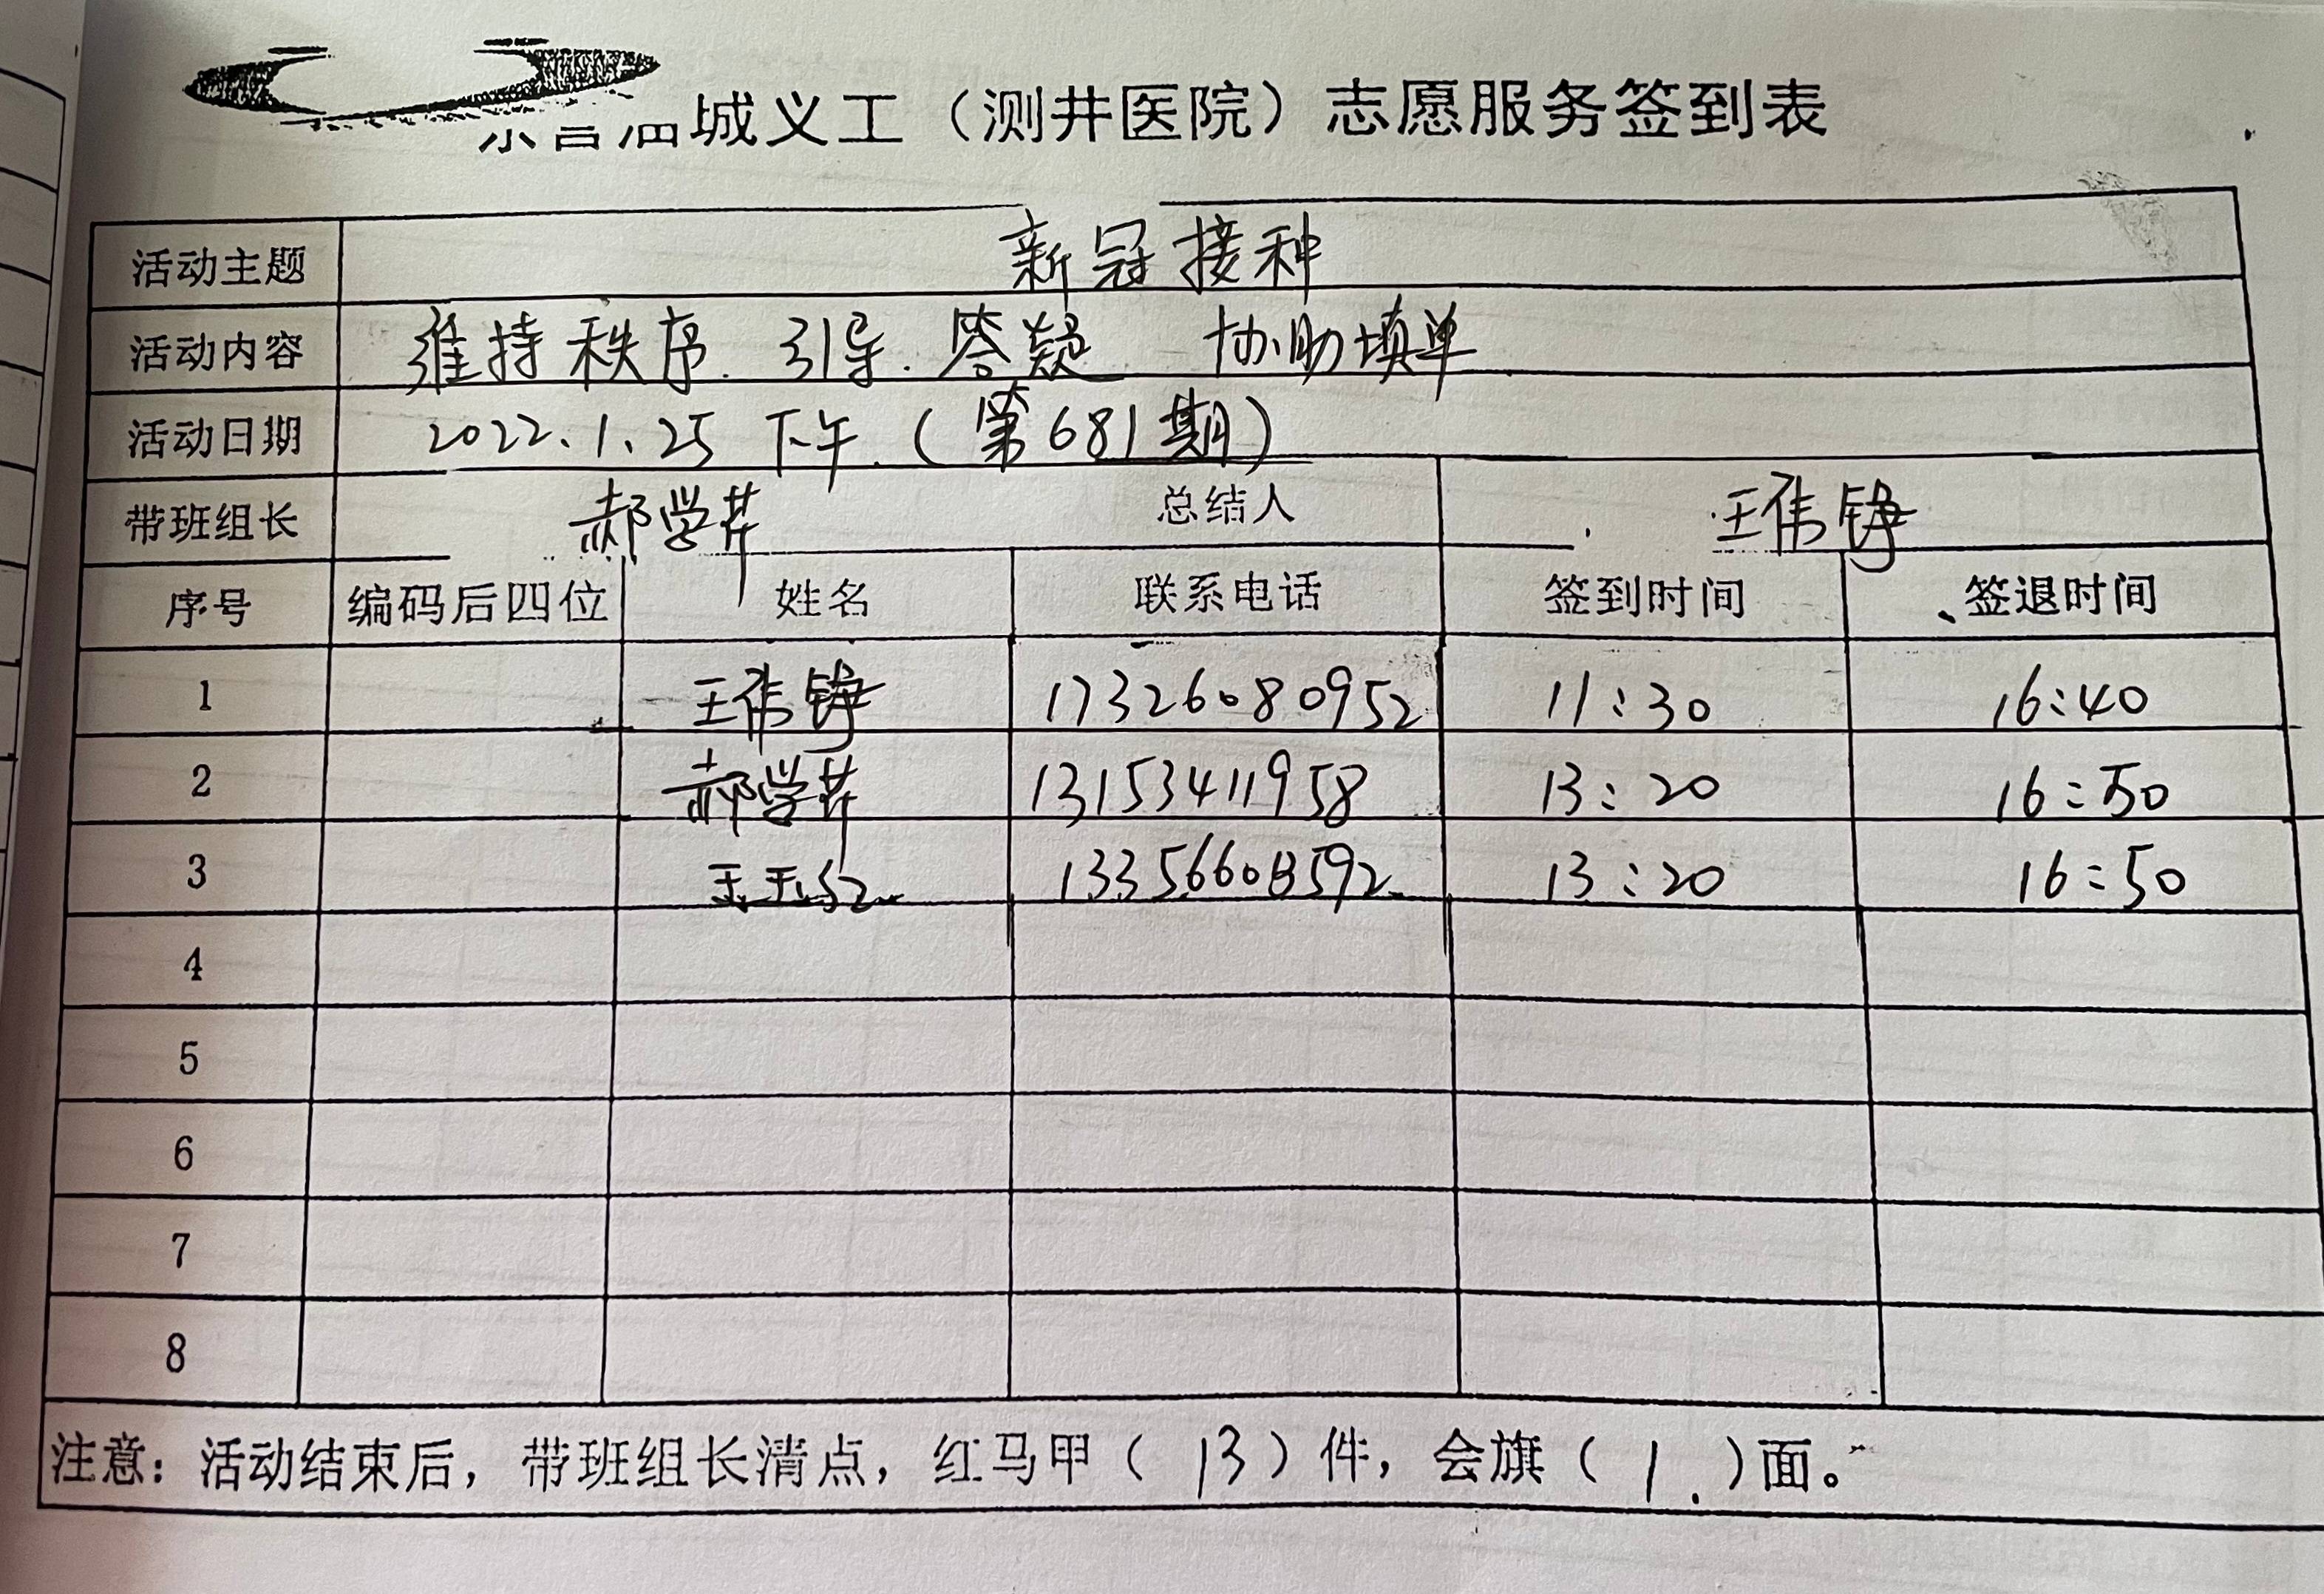 城义工（测井医院）志愿服务签到表
活动主题 新冠接种
活动内容 维持秩序. 引导. 答疑 协助填单
活动日期 2022.1.25 下午.（第681期）
带班组长 郝学芹 总结人 王伟铮
序号 编码后四位 姓名 联系电话 签到时间 签退时间
1 王伟铮 17326080952 11:30 16:40
2 郝学芹 13153411958 13:20 16:50
3 13:20 16:50
4
5
6
7
8
注意：活动结束后，带班组长清点，红马甲（13）件，会旗（1.）面。